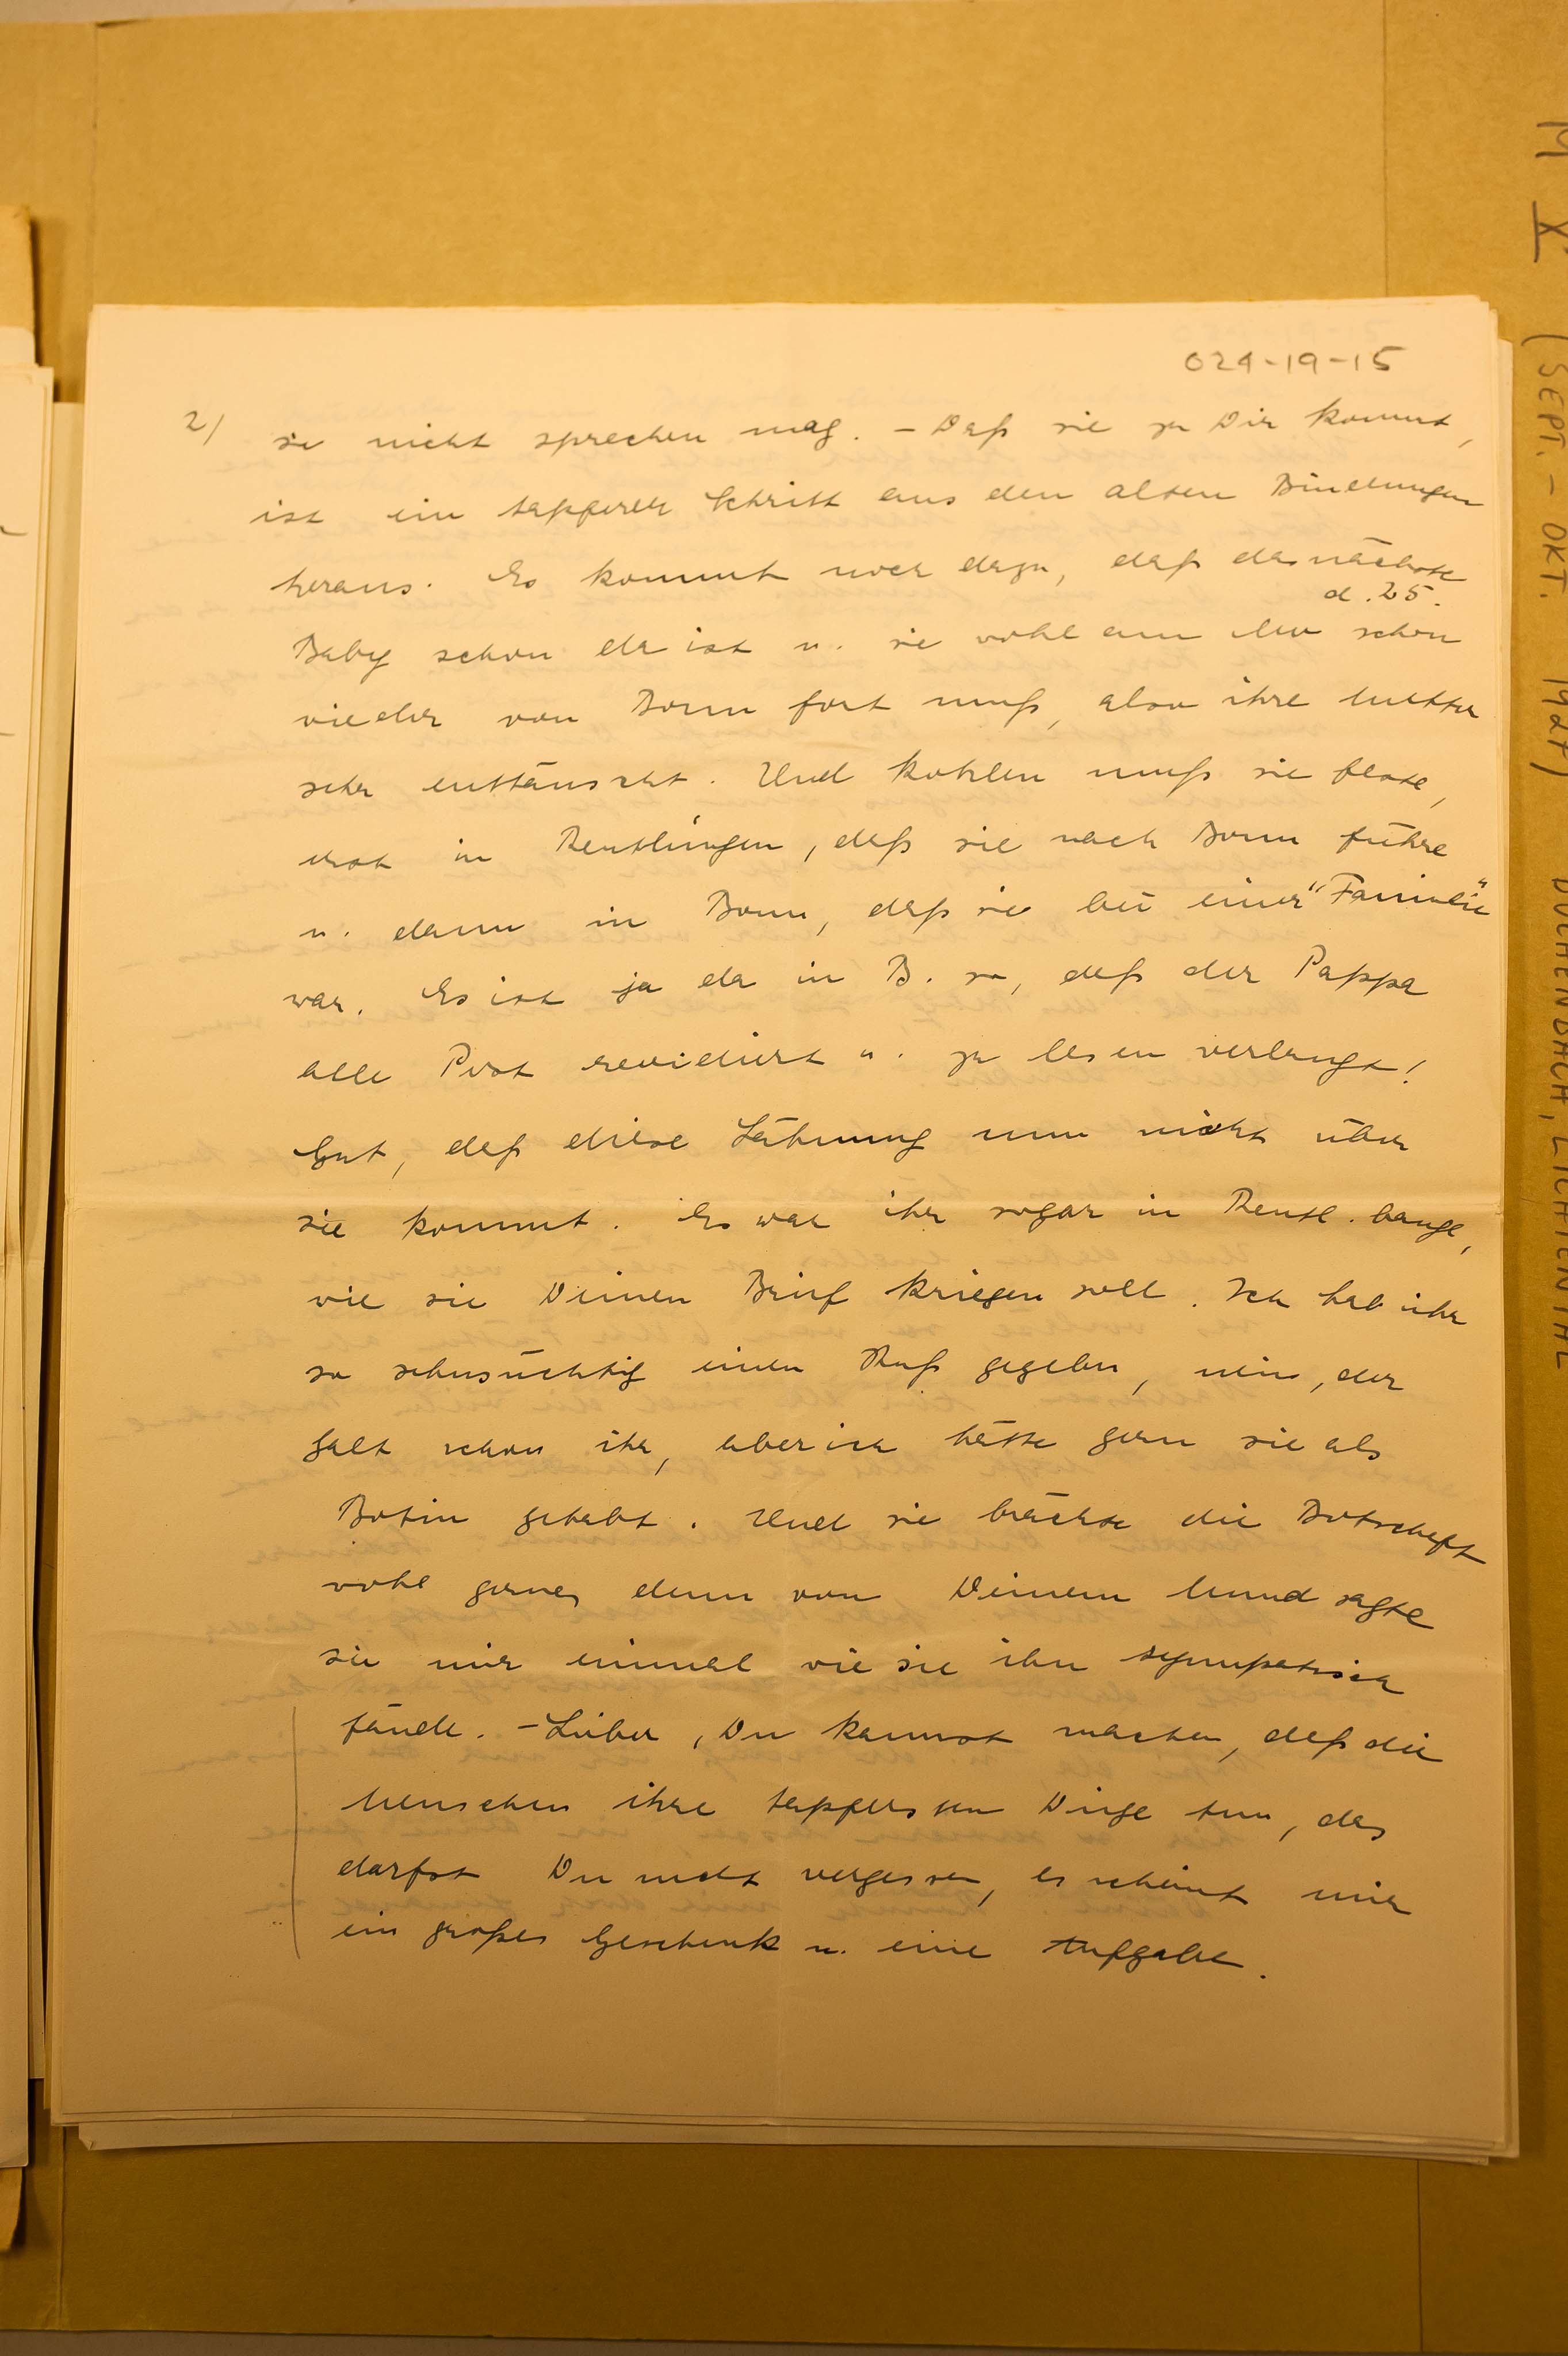 024-19-15
2/ sie nicht sprechen mag. – Daß sie zu Dir kommt,
ist ein tapferer Schritt aus den alten Bindungen
heraus. Es kommt noch dazu, daß das nächste
d. 25.
Baby schon da ist u. sie wohl am Mo schon
wieder von Bonn fort muß, also ihre Mutter
sehr enttäuscht. Und kohlen muß sie feste,
erst in Reutlingen, daß sie nach Bonn führe
u. dann in Bonn, daß sie bei einer "Familie"
war. Es ist ja da in B. so, daß der Pappa
alle Post revidiert u. zu lesen verlangt!
Gut, daß diese Lähmung nun nicht über
sie kommt. Es war ihr sogar in Reutl. bange,
wie sie Deinen Brief kriegen soll. Ich hab ihr
so sehnsüchtig einen Kuß gegeben, nein, der
galt schon ihr, aber ich hätte gern sie als
Botin gehabt. Und sie brächte die Botschaft
wohl gerne, denn von Deinem Mund sagte
sie mir einmal wie sie ihn sympatisch
fände. – Lieber, Du kannst machen, daß die
Menschen ihre tapfersten Dinge tun, das
darfst Du nicht vergessen, es scheint mir
ein großes Geschenk u. eine Aufgabe.
M X (SEPT. – OKT. 192) BUCHENBACH, LICHTENTHAL